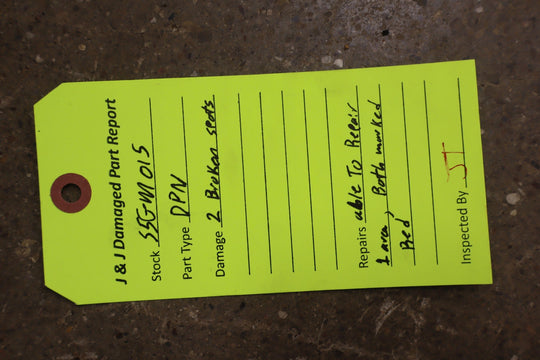 J & J Damaged Part Report
Stock SSGM015
Part Type DPN
Damage 2 Broken spots
Repairs able To Repair
1 area, Both marked
Red
Inspected By JT